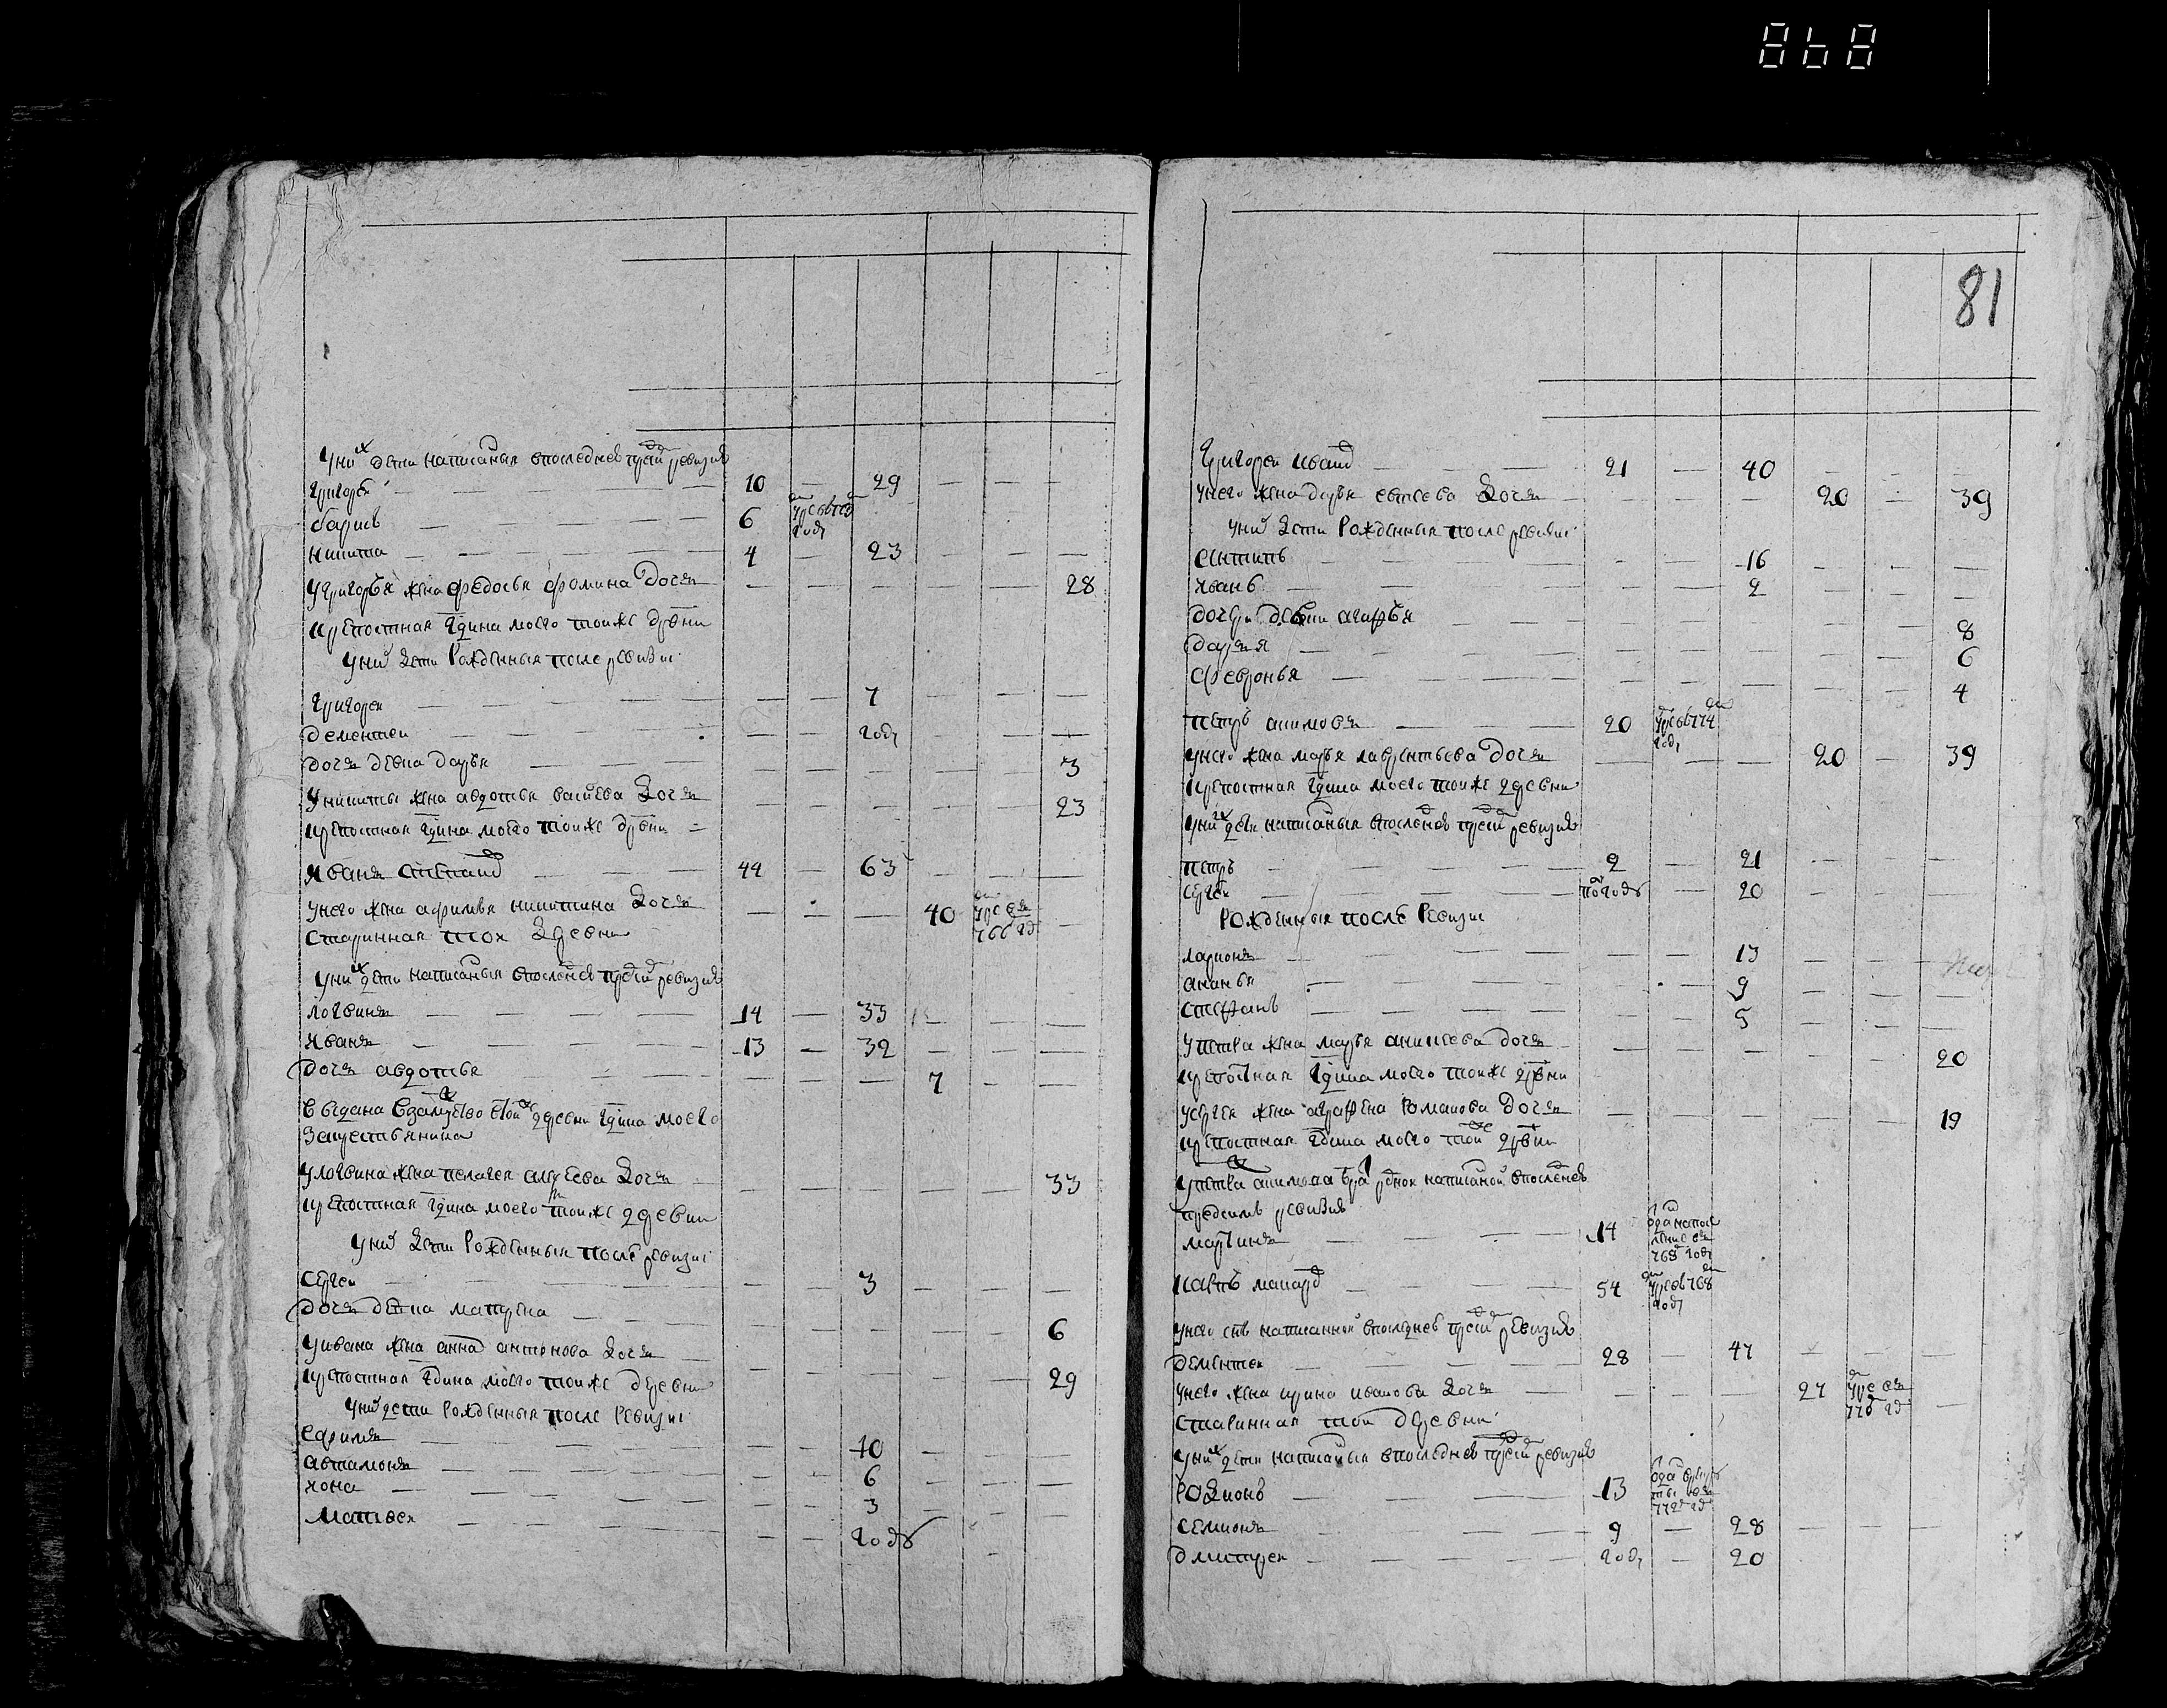 868
81
у них дети написаныя в последней третьей ревизии
григорей — 10 — 29 — — —
барисъ — 6 умре в 765 году
никита — 4 — 23 — — —
у григорья жена федосья фомина дочь — — — — — 28
крепостная гдина моего тоиже дрвни
у них дети рожденныя после ревизии
григореи — — — 7 — — —
дементеи — — — году — — —
дочь девка дарья — — — — — 3
у никиты жена авдотья васильева дочь — — — — — 23
крепостная гдина моего тоиже дрвни
иванъ степанов 44 — 63 — — —
у него жена афимья никитина дочь — — — 40 умре в 766 гд —
старинная тоя деревни
у них дети написаныя в последней третьей ревизии
логвинъ — 14 — 33 — — —
иванъ — 13 — 32 — — —
дочь авдотья — — — 7 — —
выдана в замужество в тои же деревни гдина моего
за крестьянина
у логвина жена пелагея алексеева дочь — — — — — 33
крепостная гдина моего тоиже деревни
у них дети рожденныя после ревизии
сергеи — — — 3 — — —
дочь девка матрена — — — — — 6
у ивана жена анна антонова дочь — — — — — 29
крепостная гдина моего тоиже деревни
у них дети рожденныя после ревизии
ефимъ — — — 10 — — —
автамонъ — — — 6 — — —
иона — — — 3 — — —
матвеи — — — году — — —
григореи иванов — 21 — 40 — — —
у него жена дарья евсеева дочь — — — 20 — 39
у них дети рожденныя после ревизии
антипъ — — — 16 — — —
иванъ — — — 2 — — —
дочери девки агафья — — — — — 8
дарья — — — — — 6
февронья — — — — — 4
петръ акимовъ — 20 умре в 774 году
у него жена марья лаврентьева дочь — — — 20 — 39
крепостная гдина моего тоиже деревни
у них дети написаныя в последней третьей ревизии
петръ — 2 — 21 — — —
сергеи — полгоду — 20 — — —
рожденныя после ревизии
ларионъ — — — 13 — — —
ананья — — — 9 — — —
стефанъ — — — 5 — — —
у петра жена марья аникеева дочь — — — — — 20
крепостная гдина моего тоиже дрвни
у сергея жена аграфена романова дочь — — — — — 19
крепостная гдина моего тоиже дрвни
у петра акимова брат родной написаной в последней
пред сим ревизии
мартинъ — 14 768 году
карпъ макаров — 54 умре в 768 году
у него сынъ написанной в последней третьей ревизии
дементеи — 28 — 47 — — —
у него жена ирина иванова дочь — — — 27 умре в 776 гд —
старинная тои деревни
у них дети написаныя в последней третьей ревизии
родионъ — 13 отдан в рекруты в 772 гд
семионъ — 9 — 28 — — —
дмитреи — году — 20